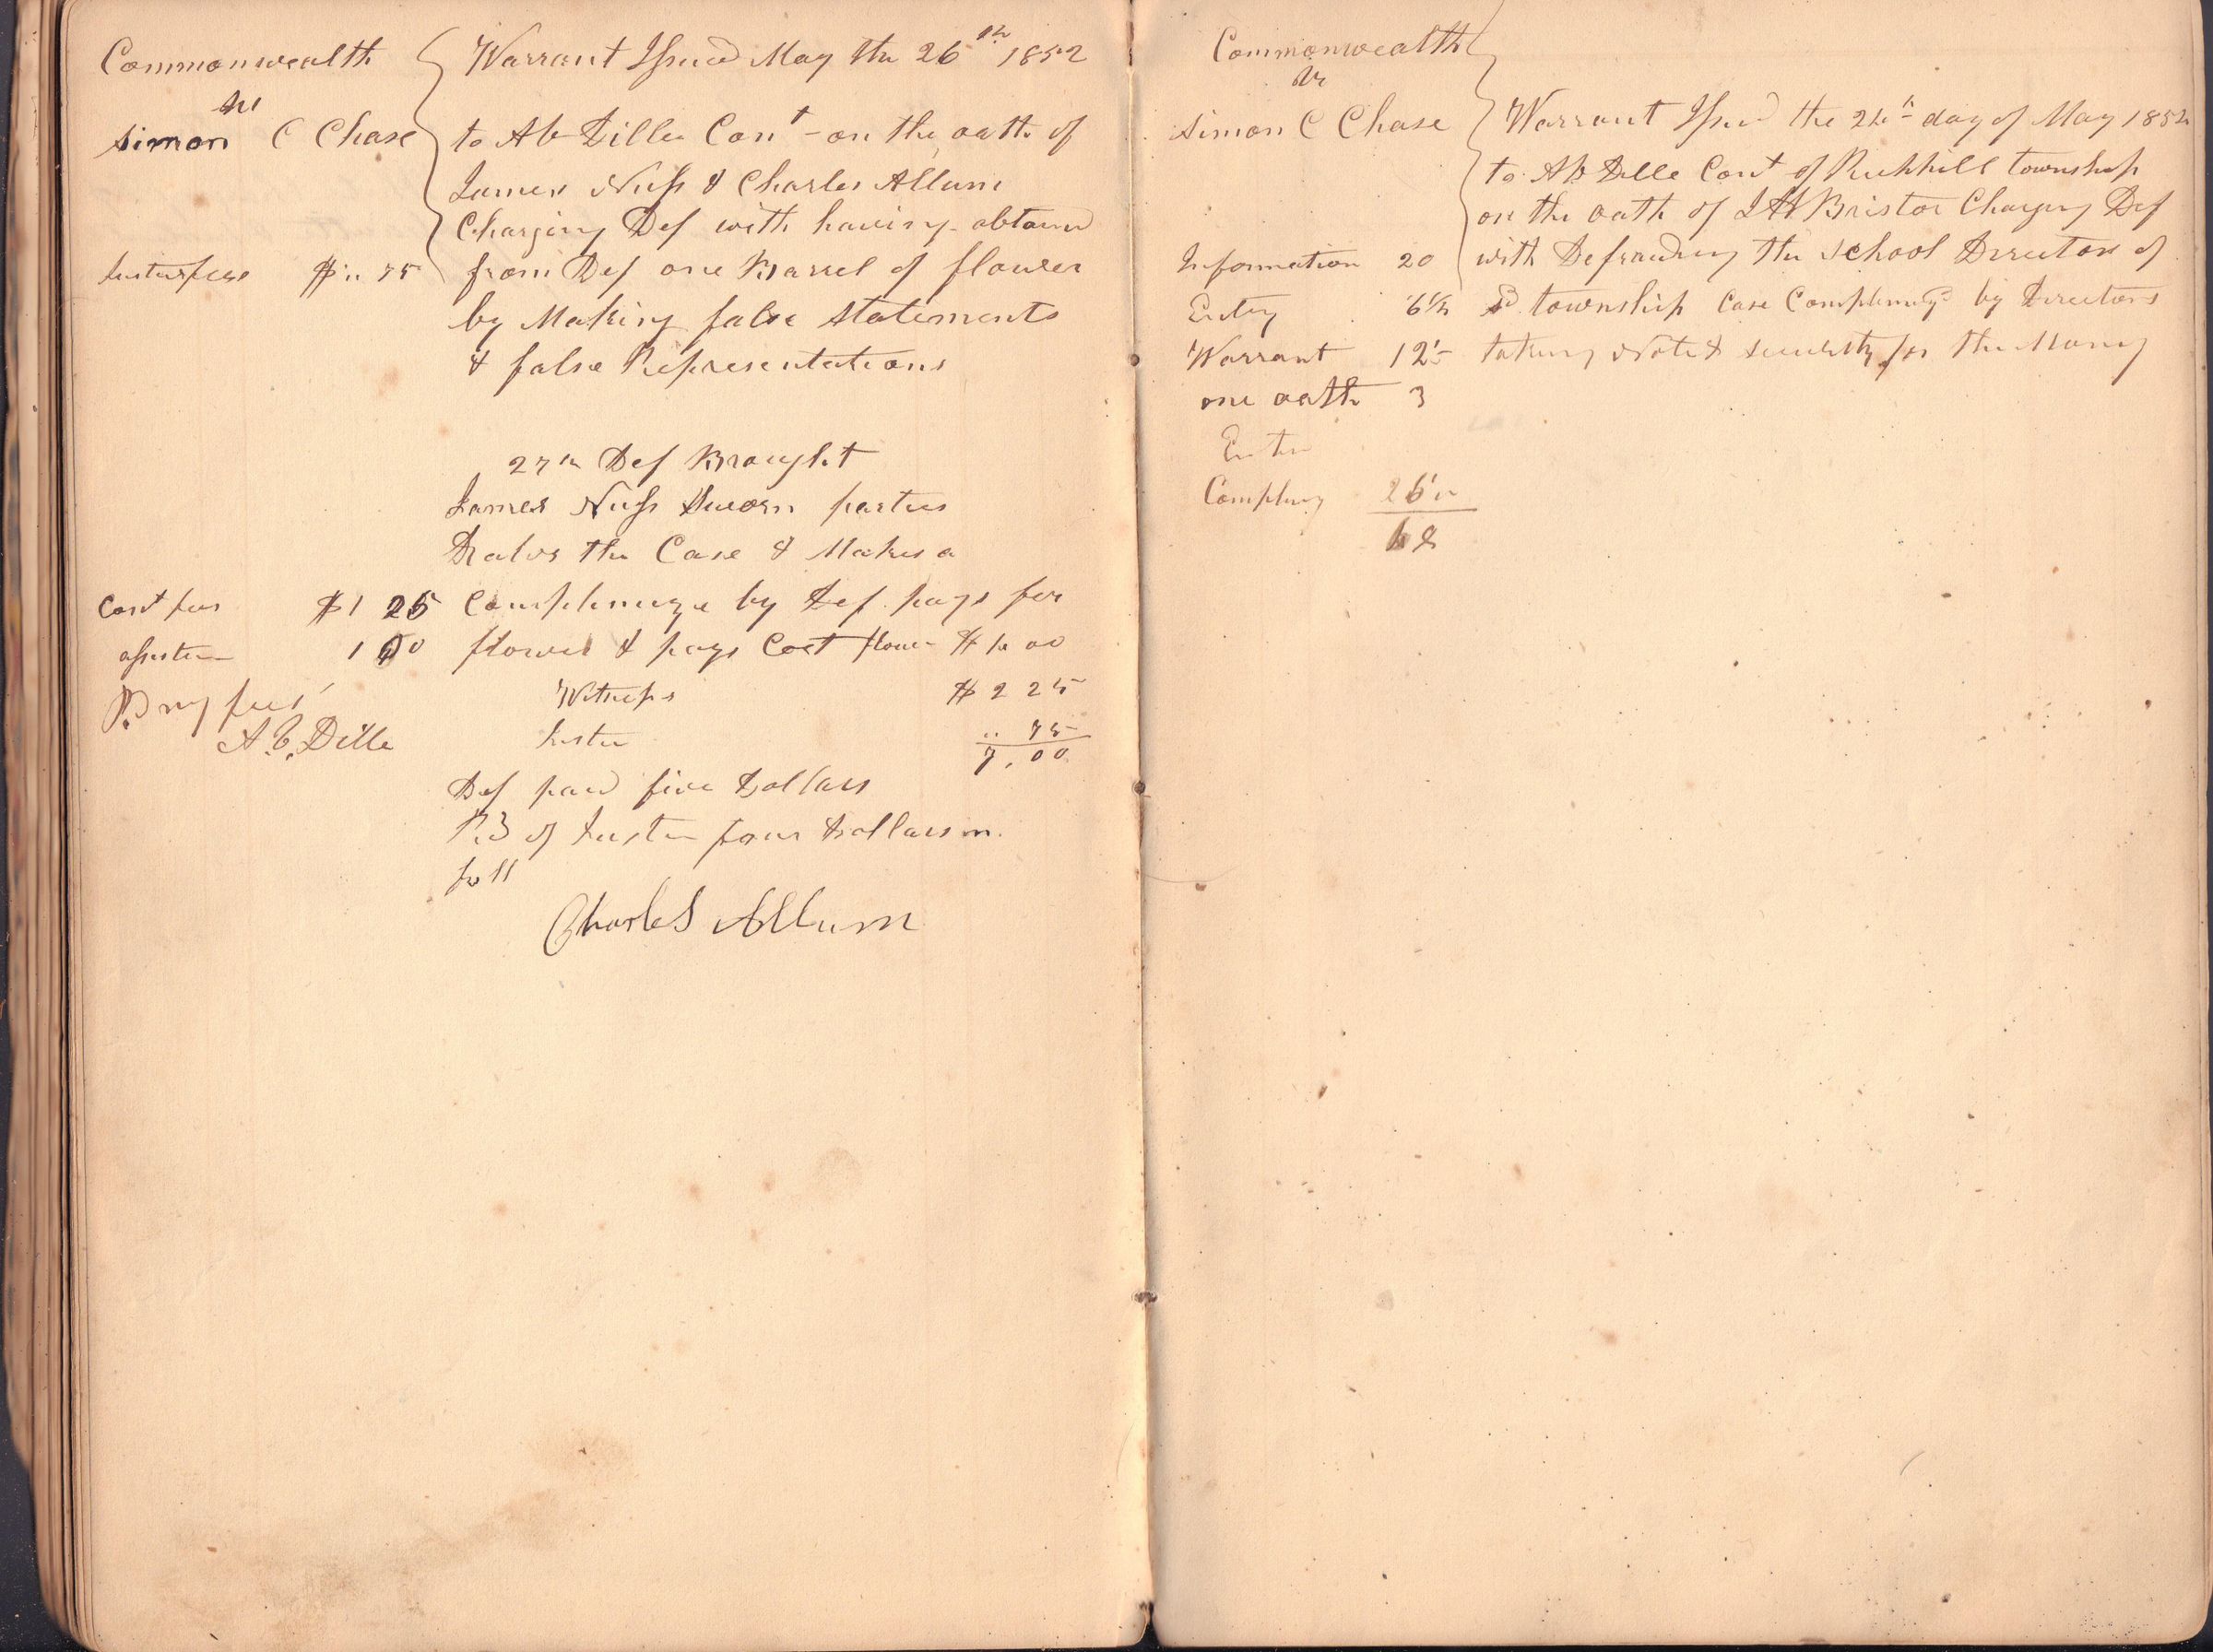 Commonwealth
vs
Simon C Chase
Justus fees $ .. 75
Warrant Issued May the 26th 1852
to Ab Dille Cont - on the oath of
James Nuss & Charles Allum
Charging Def with having obtained
from Def one Barrel of flower
by Making false Statements
& false Representations
27th Def Brought
James Nuss Sworn parties
the Case & Makes a
Const fees $1 25 by Def pays for
1 00 flower & pays Cost flour $4 00
fees Witness $2 25
A. B. Dille Justice .. 75
7.00
Def paid five Dollars
of Justice four Dollars in
full
Charles Allum
Commonwealth
vs
Simon C Chase
Warrant Issued the 24th day of May 1852
to Ab Dille Const of Richhill township
on the oath of Bristor Charging Def
Information 20 with Defrauding the School Directors of
Entry 6 1/2 sd township Case by Directors
Warrant 12 1/2 taking Note & security for the Money
one oath 3
Enter